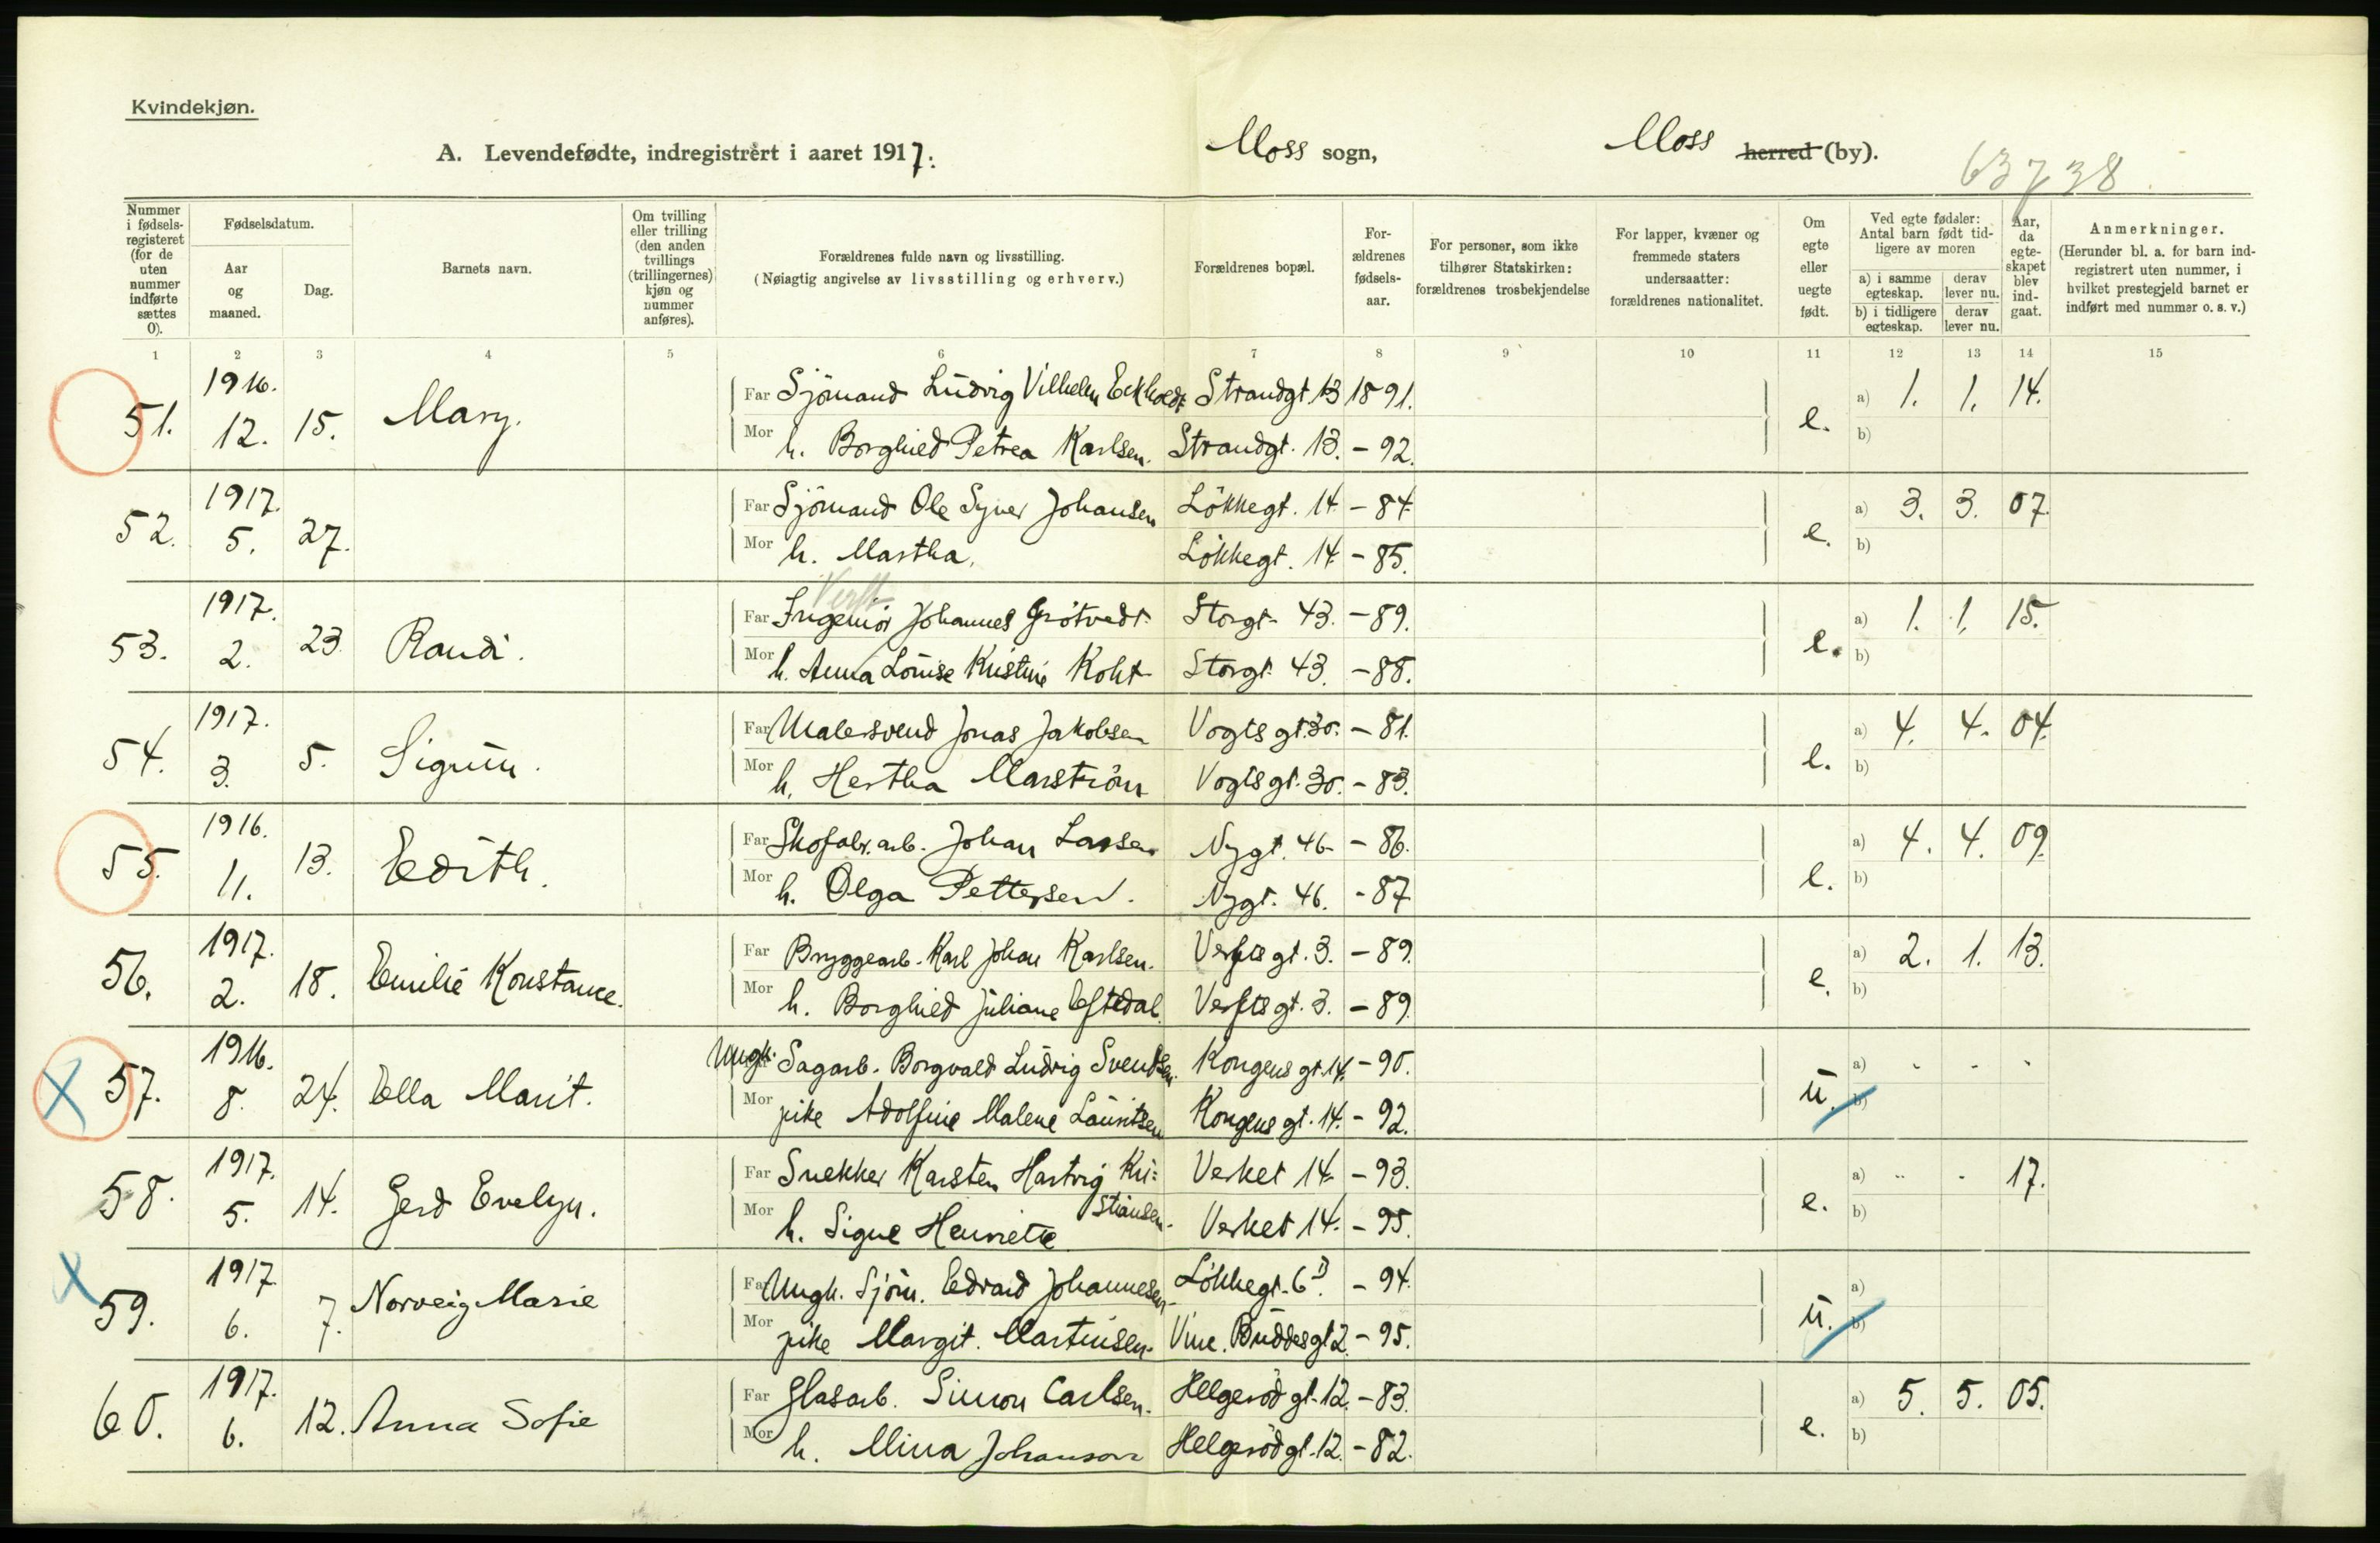 Kvindekjøn.
A. Levendefødte, indregistrert i aaret 1917. Moss sogn, Moss herred (by).
63738
Nummer i fødsels-registeret (for de uten nummer indførte sættes 0).
Fødselsdatum.
Aar og maaned.
Dag.
Barnets navn.
Om tvilling eller trilling (den anden tvillings (trillingernes) kjøn og nummer anføres).
Forældrenes fulde navn og livsstilling.
(Nøiagtig angivelse av livsstilling og erhverv.)
Forældrenes bopæl.
For-ældrenes fødsels-aar.
For personer, som ikke tilhører Statskirken: forældrenes trosbekjendelse
For lapper, kvæner og fremmede staters undersaatter: forældrenes nationalitet.
Om egte eller uegte født.
Ved egte fødsler: Antal barn født tid-ligere av moren
a) i samme egteskap. derav lever nu.
b) i tidligere egteskap. derav lever nu.
Aar, da egte-skapet blev ind-gaat.
Anmerkninger.
(Herunder bl. a. for barn ind-registrert uten nummer, i hvilket prestegjeld barnet er indført med nummer o. s. v.)
1 2 3 4 5 6 7 8 9 10 11 12 13 14 15
51. 1916. 12. 15. Mary. Far Sjömand Ludvig Vilhelm Eckholdt Strandgt. 13 1891. e. a) 1. 1. 14.
Mor h. Borghild Petrea Karlsen. Strandgt. 13. - 92. b)
52. 1917. 5. 27. Far Sjömand Ole Syver Johansen Lökkegt. 14 - 84. e. a) 3. 3. 07.
Mor h. Martha. Lökkegt. 14 - 85. b)
Verft
53. 1917. 2. 23. Randi. Far Ingeniör Johannes Grötvedt Storgt. 43. - 89. e. a) 1. 1. 15.
Mor h. Anna Louise Kristine Koht Storgt. 43. - 88. b)
54. 1917. 3. 5. Sigrun. Far Malersvend Jonas Jakobsen Vogts gt. 30. - 81. e. a) 4. 4. 04.
Mor h. Hertha Marström Vogts gt. 30. - 83. b)
55. 1916. 11. 13. Edith. Far Skofabr. arb. Johan Larsen Nygt. 46 - 86. e. a) 4. 4. 09.
Mor h. Olga Pettersen. Nygt. 46. - 87. b)
56. 1917. 2. 18. Emilie Konstance. Far Bryggearb. Karl Johan Karlsen. Verfts gt. 3. - 89. e. a) 2. 1. 13.
Mor h. Borghild Juliane Eftedal. Verfts gt. 3. - 89. b)
57. 1916. 8. 24. Ella Marit. Ungk. Sagarb. Borgvald Ludvig Svendsen. Kongens gt. 14. - 90. u. a) - - -
Mor pike Adolfine Malene Lauritsen Kongens gt. 14. - 92. b)
58. 1917. 5. 14. Gerd Evelyn. Far Snekker Karsten Hartvig Kri= Verket 14 - 93. e. a) - - 17.
stiansen.
Mor h. Signe Henriette Verket 14. - 95. b)
59. 1917 6. 7. Norveig Marie Far Ungk. Sjöm. Edvard Johannesen Lökkegt. 6 D. - 94. u. a)
Mor pike Margit Martinsen. Vinc. Buddes gt 2. - 95. b)
60. 1917. 6. 12. Anna Sofie Far Glasarb. Simon Carlsen. Helgeröd gt. 12. - 83. e. a) 5. 5. 05.
Mor h. Mina Johanson Helgeröd gt. 12. - 82. b)